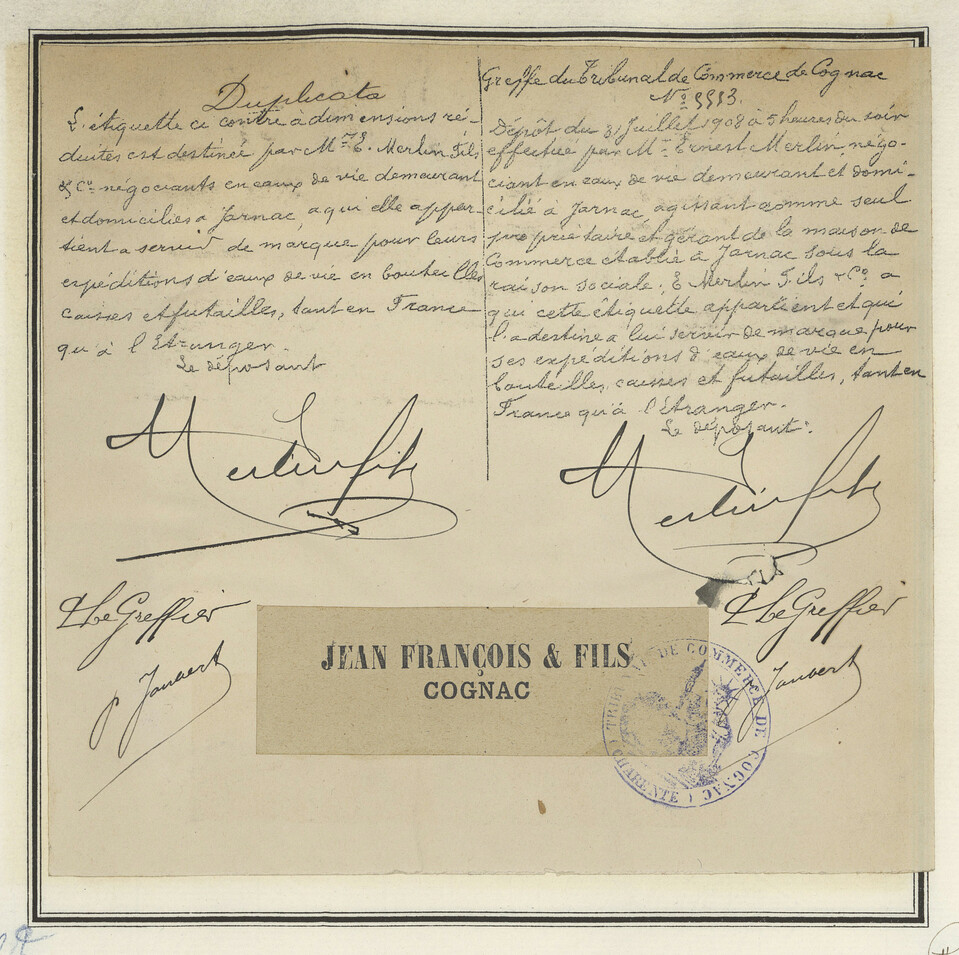 Duplicata
L'étiquette ci contre à dimensions ré-
duites est destinée par Mrs E. Merlin Fils
& Co négociants en eaux de vie demeurant
et domiciliés a Jarnac, a qui elle appar-
tient a servir de marque pour leurs
expéditions d'eaux de vie en bouteilles
caisses et futailles, tant en France
qu'à l'Etranger.
Le déposant
Merlin fils
Le Greffier
Greffe du Tribunal de Commerce de Cognac
No
Dépôt du 31 Juillet 1908 à 5 heures du soir
effectué par Mr Ernest Merlin, négo-
ciant en eaux de vie demeurant et domi-
cilié à Jarnac, agissant comme seul
propriétaire et gérant de la maison de
Commerce etablie à Jarnac sous la
raison sociale: E Merlin Fils & Co a
qui cette étiquette appartient et qui
l'a destine a lui servir de marque pour
ses expéditions d'eaux de vie en
bouteilles, caisses et futailles, tant en
France qu'à l'étranger.
Le déposant:
Merlin fils
Le Greffier
JEAN FRANÇOIS & FILS
COGNAC
TRIBUNAL DE COMMERCE DE COGNAC
(CHARENTE)